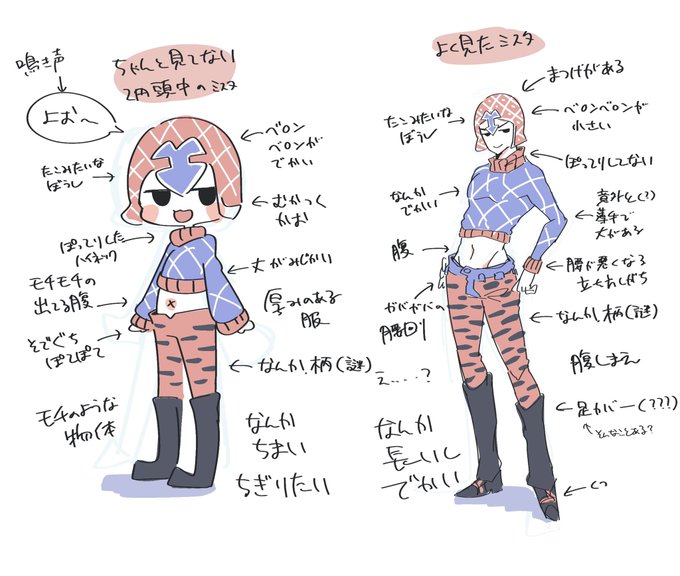 鳴き声
よお〜
ちゃんと見てない
2円頭中のミスタ
たこみたいな
ぼうし
ベロン
ベロンが
でかい
むかつく
かお
ぽってりした
ハイネック
丈がみじかい
モチモチの
出てる腹
厚みのある
服
そでぐち
ぽてぽて
なんか柄(謎)
モチのような
物体
なんか
ちまい
ちぎりたい
よく見たミスタ
まつげがある
たこみたいな
ぼうし
ベロンベロンが
小さい
ぽってりしてない
なんか
でかい
意外と(?)
薄手で
丈がある
腹
腰が悪くなる
立ち方しがち
ガバガバの
腰回り
なんか柄(謎)
え……?
腹しまえ
足カバー(???)
↑そんなことある?
なんか
長いし
でかい
くつ